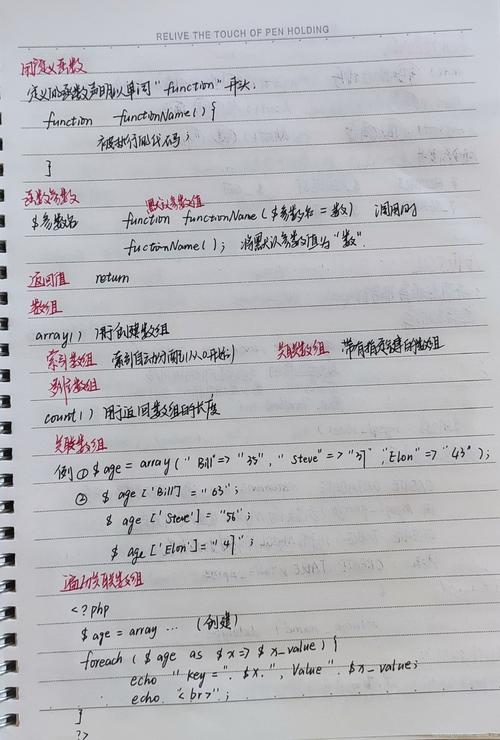 RELIVE THE TOUCH OF PEN HOLDING
用户定义函数
定义的函数声明以单词"function"开头:
function functionName() {
被执行的代码;
}
函数参数 默认参数值
$参数名 function functionName($参数名=数) 调用时
fuctionName(); 将默认参数值为"数".
返回值 return
数组
array() 用于创建数组
索引数组 索引自动分配(从0开始) 关联数组 带有指定键的数组
列数组
count() 用于返回数组的长度
关联数组
例①$age = array("Bill"=>"35", "Steve"=>"37", "Elon"=>"43");
② $age['Bill']="63";
$age['Steve']="56";
$age['Elon']="47";
遍历关联数组
<?php
$age = array ... (创建)
foreach ($age as $x=>$x_value) {
echo "key=".$x.", Value".$x_value;
echo "<br>";
}
?>